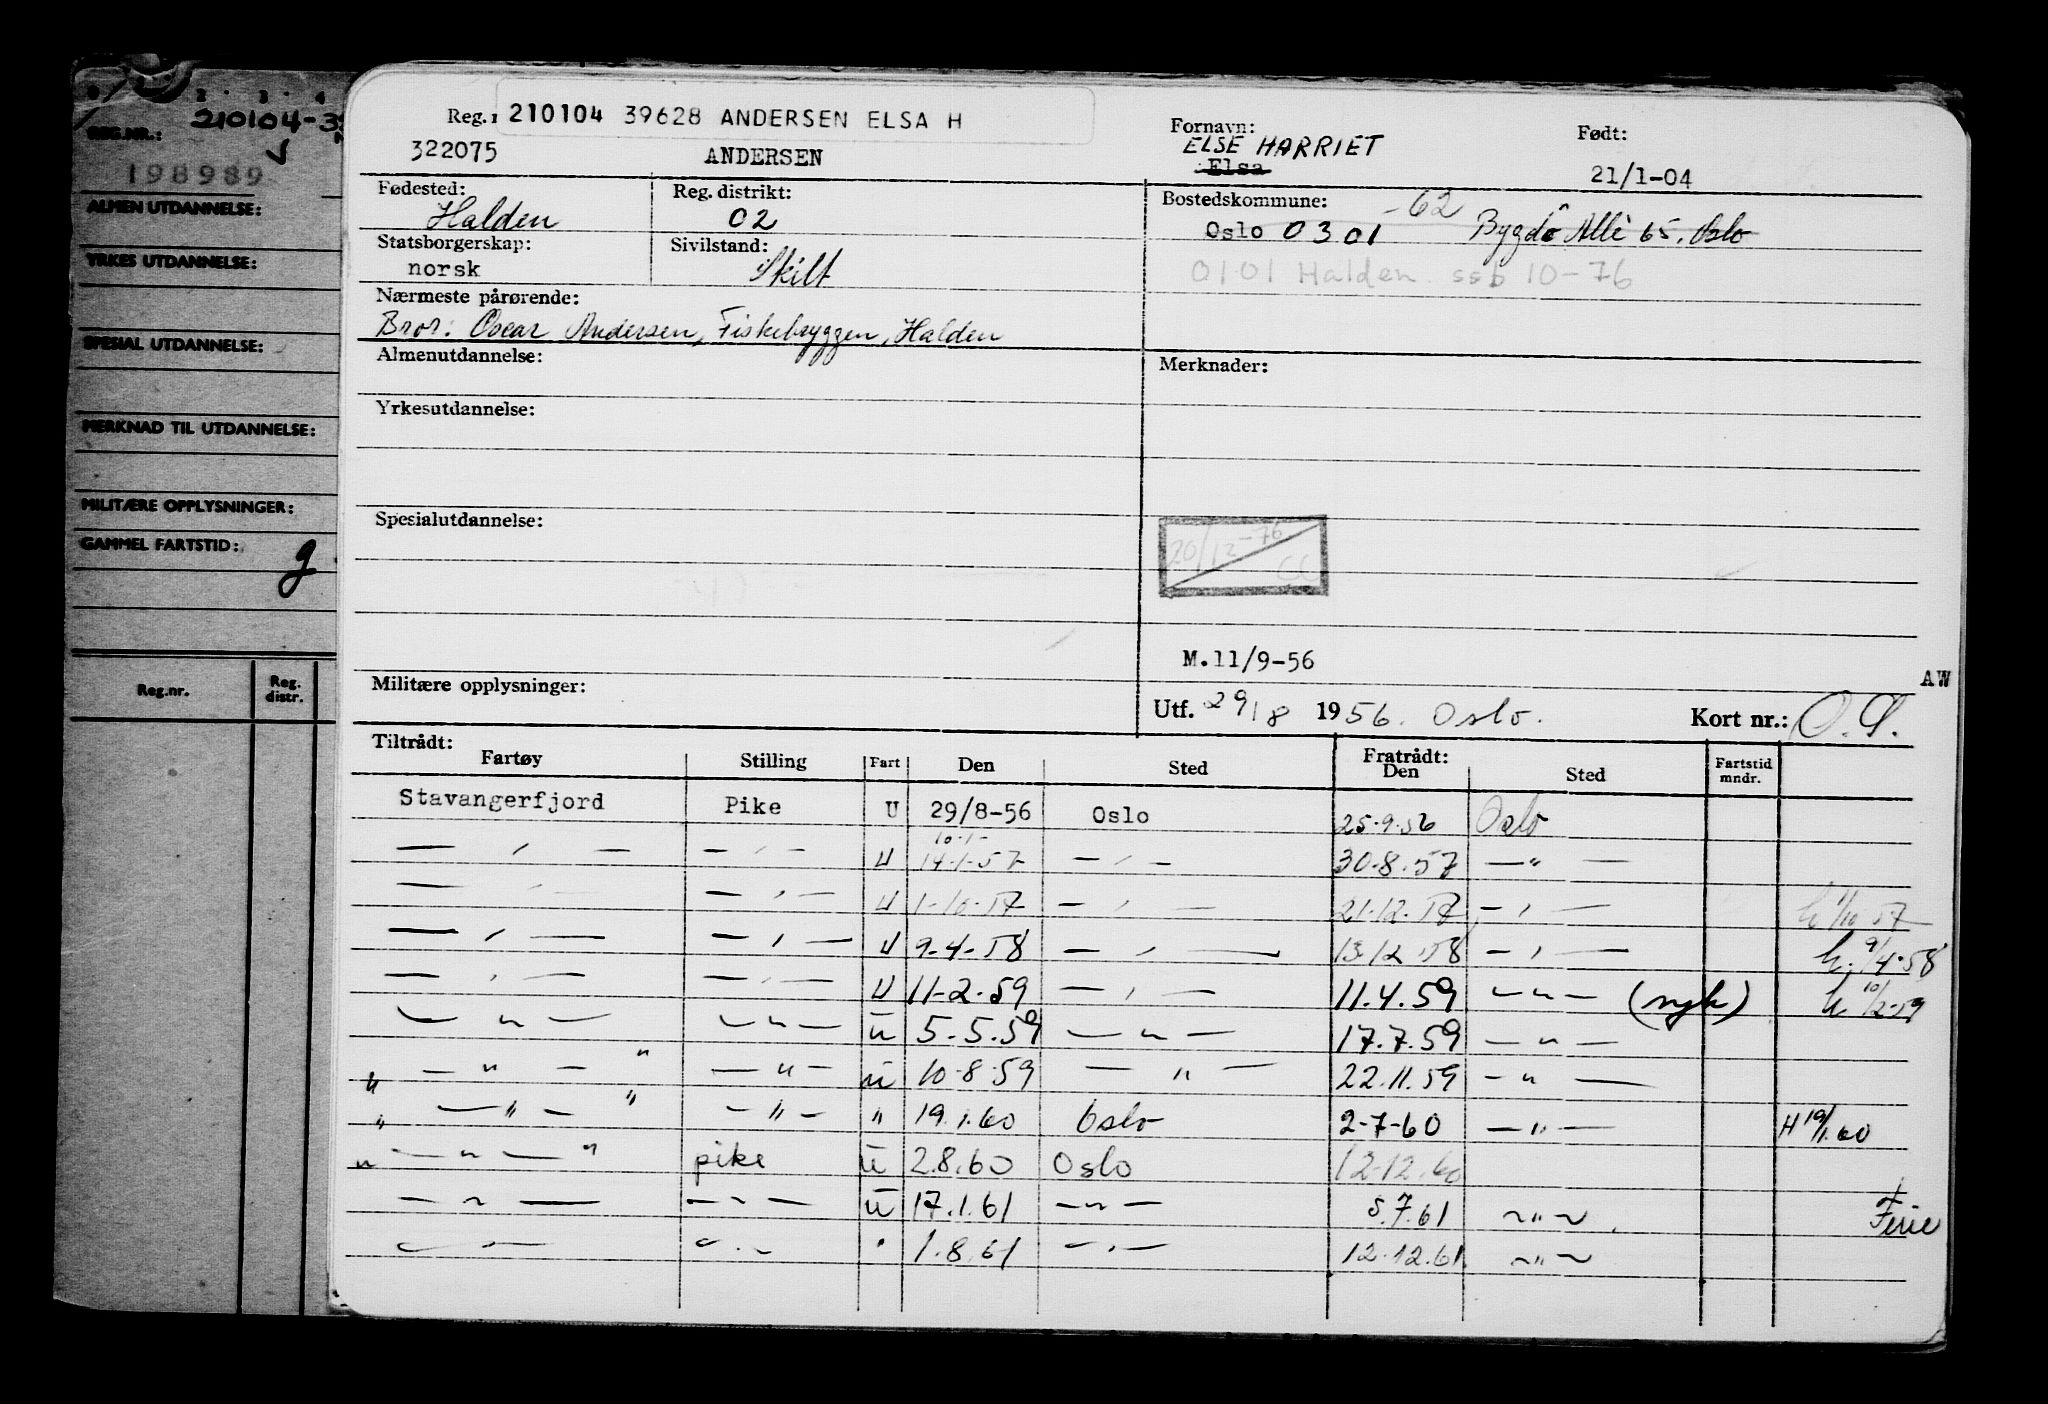 2 · 3 · 4
REG.NR.: 210104-39
198989
ALMEN UTDANNELSE:
YRKES UTDANNELSE:
SPESIAL UTDANNELSE:
MERKNAD TIL UTDANNELSE:
MILITÆRE OPPLYSNINGER:
GAMMEL FARTSTID: g
Reg.nr. Reg. distr.
Reg. 210104 39628 ANDERSEN ELSA H
322075 ANDERSEN
Fornavn: Født:
ELSE HARRIET
Elsa 21/1-04
Fødested: Reg. distrikt: Bostedskommune:
Halden 02 Oslo 0301 -62 Bygdö Allè 65, Oslo
Statsborgerskap: Sivilstand:
norsk Skilt 0101 Halden ssb 10-76
Nærmeste pårørende:
Bror: Oscar Andersen, Fiskebryggen, Halden
Almenutdannelse: Merknader:
Yrkesutdannelse:
Spesialutdannelse:
20/12-76
CC
M.11/9-56
AW
Militære opplysninger: Utf. 29/8 1956. Oslo. Kort nr.: O.S.
Tiltrådt: Fratrådt:
Fartøy Stilling Fart Den Sted Den Sted Fartstid mndr.
Stavangerfjord Pike U 29/8-56 Oslo 25.9.56 Oslo
10-1-
— " — — " — U 14-1-57 — " — 30-8.57 — " —
— " — — " — U 1-10-57 — " — 21-12.57 — " — h 1/10 57
— " — — " — U 9-4-58 — " — 13-12 58 — " — h. 9/4-58
— " — — " — U 11-2-59 — " — 11.4.59 — " — (syk) h 10/2-59
— " — — " — u 5.5.59 — " — 17.7.59 — " —
" — " — " — " — u 10-8-59 — " — 22.11.59 — " —
" — " — " — " — " 19.1.60 Oslo 2-7-60 — " — H 19/1.60
" — " — " pike u 2.8.60 Oslo 12-12.60
— " — — " — u 17.1.61 — " — 5.7.61 — " — Ferie
— " — — " — " 1.8.61 — " — 12-12.61 — " —